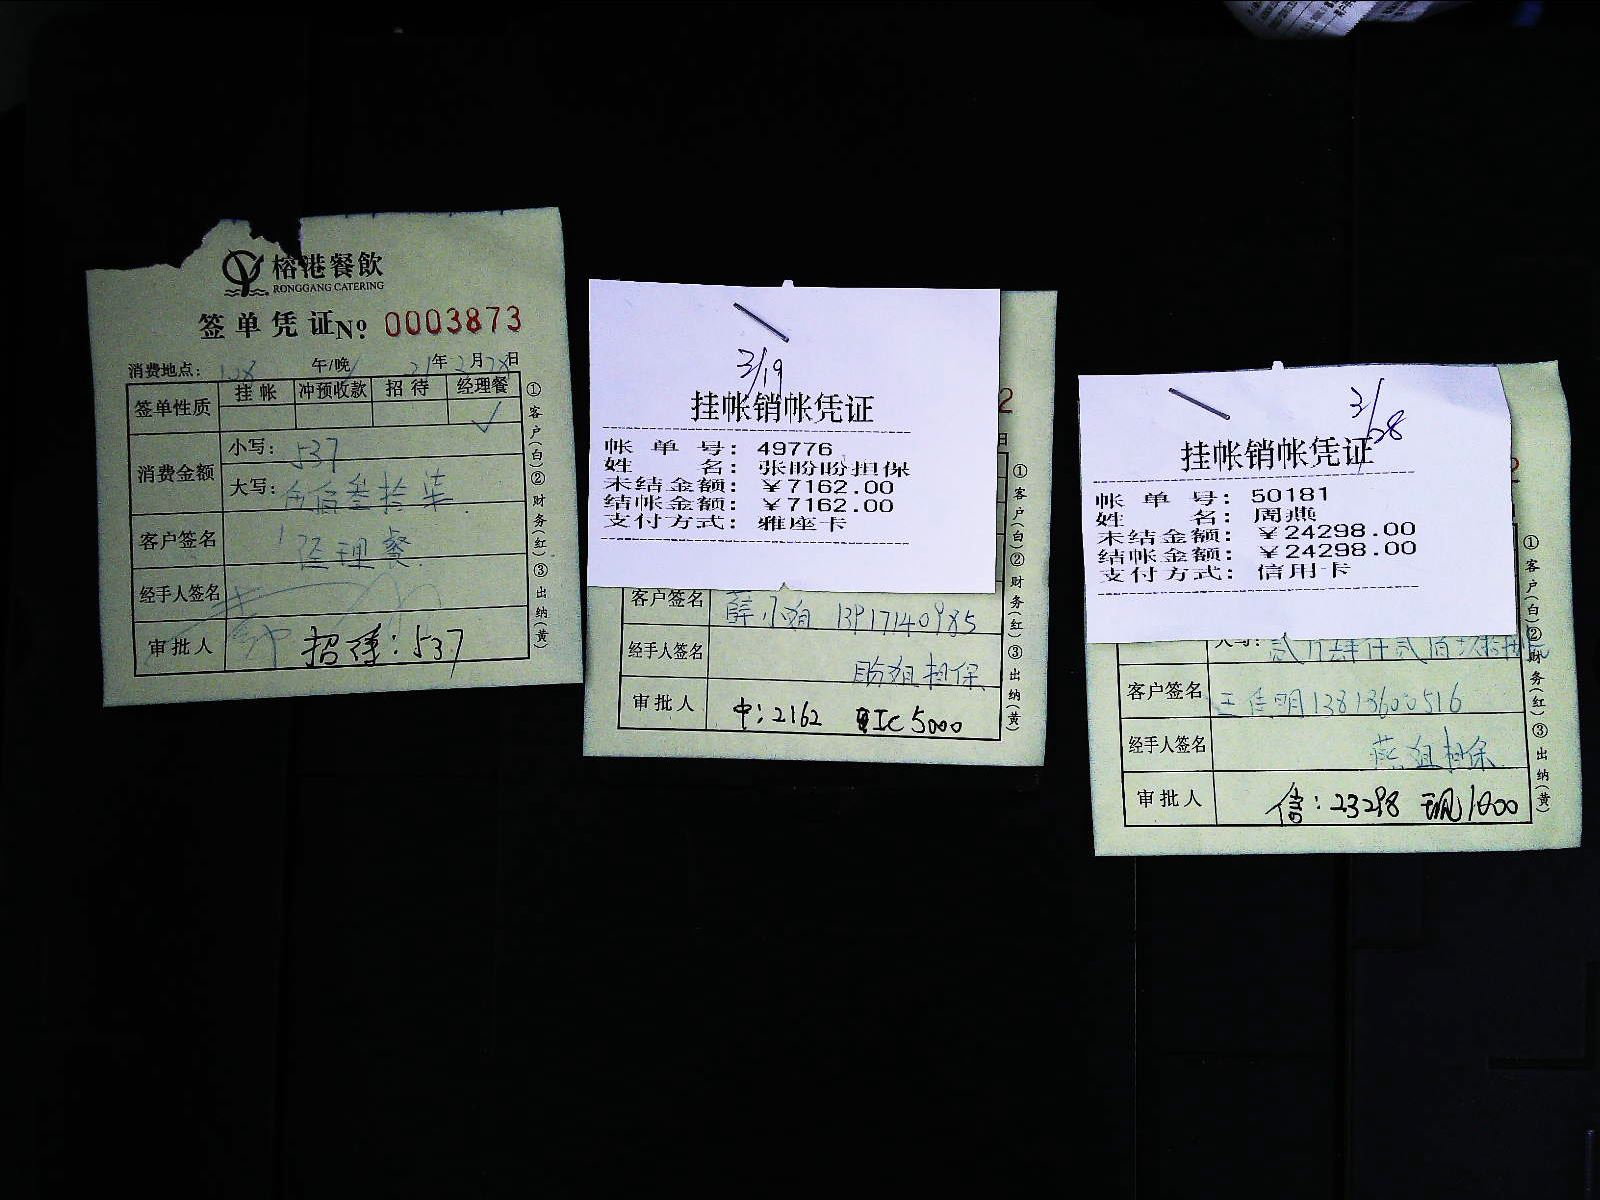 榕港餐飲
RONGGANG CATERING
签单凭证№ 0003873
消费地点: 午/晚 21年2月28日
签单性质 挂帐 冲预收款 招待 经理餐
✓
消费金额 小写: 537
大写: 伍佰叁拾柒
客户签名 经理餐
经手人签名
审批人 招待: 537
①客户(白)②财务(红)③出纳(黄)
3/19
挂帐销帐凭证
帐单号: 49776
姓名: 张盼盼担保
未结金额: ￥7162.00
结帐金额: ￥7162.00
支付方式: 雅座卡
2
日
客户签名 薛小姐 13917140985
经手人签名 盼姐担保
审批人 中: 2162 IC 5000
①客户(白)②财务(红)③出纳(黄)
3/28
挂帐销帐凭证
帐单号: 50181
姓名: 周燕
未结金额: ￥24298.00
结帐金额: ￥24298.00
支付方式: 信用卡
2
大写: 贰万肆仟贰佰玖拾捌
客户签名 王佳明13813600516
经手人签名 燕姐担保
审批人 信: 23298 现1000
①客户(白)②财务(红)③出纳(黄)